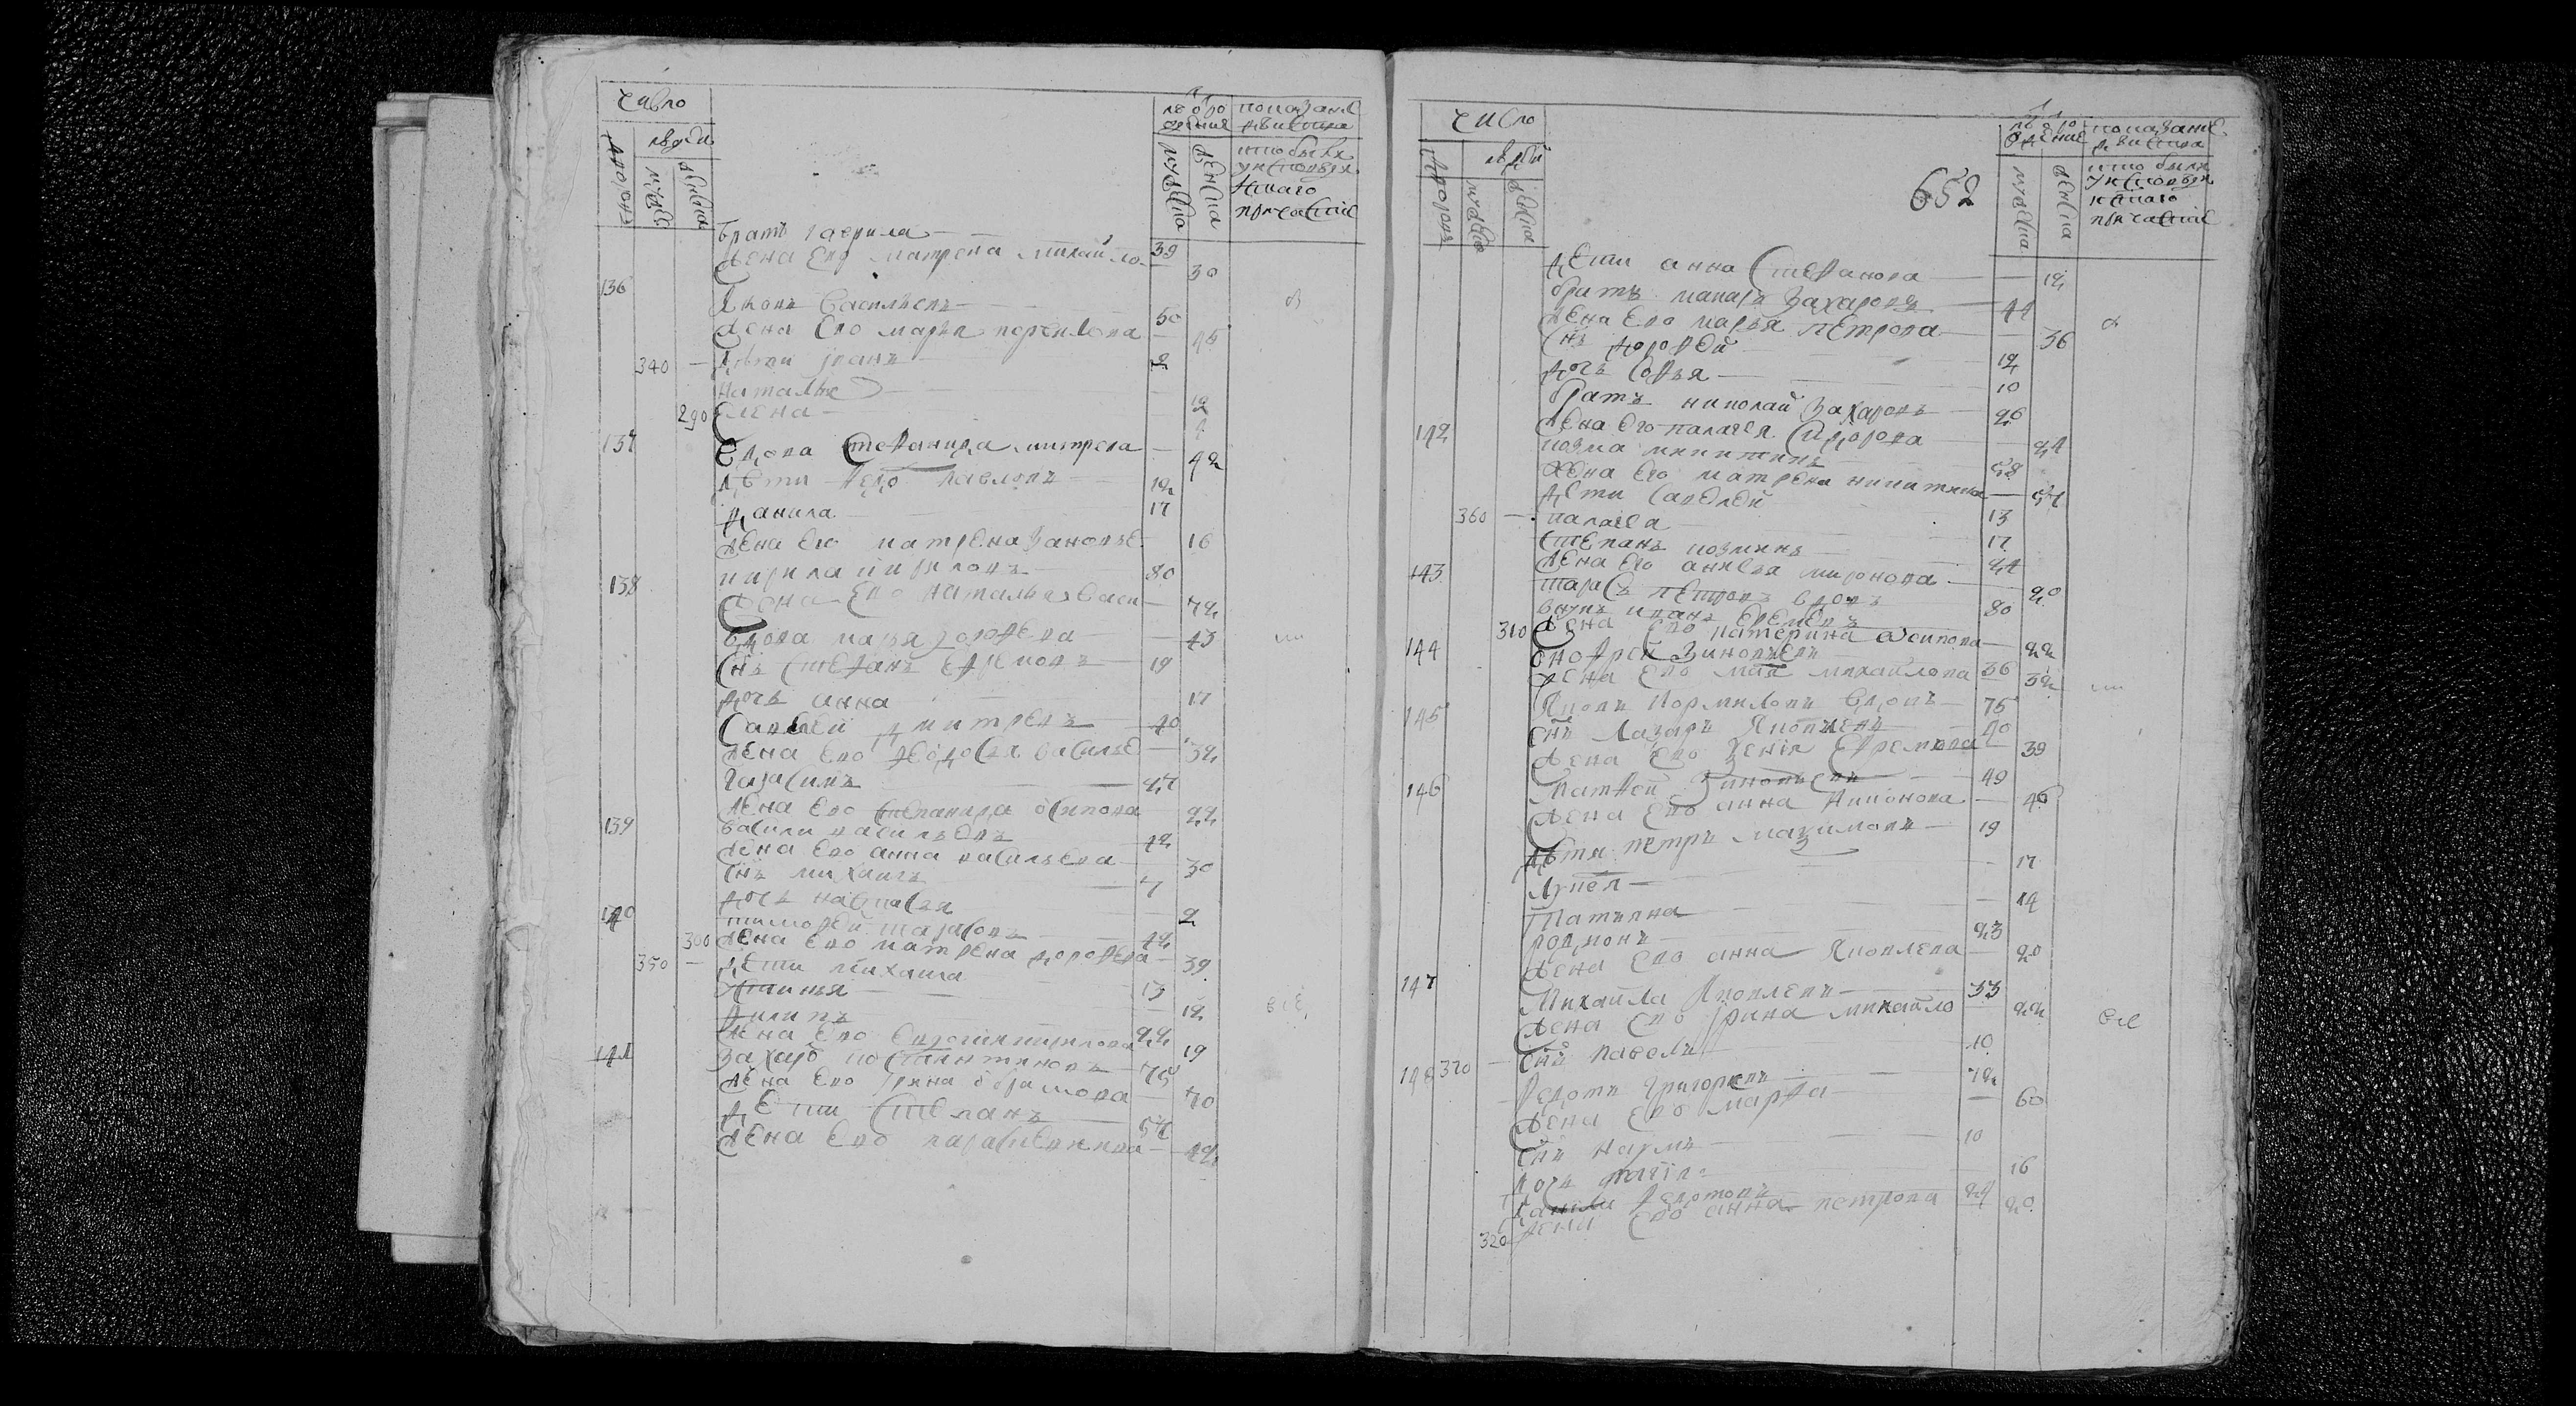 число
дворовъ
людей
мужеска
женска
лѣ о ро
ждения
мужеска
женска
показание
действа
кто былъ
у исповѣди
и св. того
причастия
Братъ гаврила — 39
жена Его матрена михайло — 30
136 Яковъ Васильевъ — 50
жена Его марья перфилова — 45
340 — дѣти иванъ — 2
наталья — 12
290 Елена
137 Вдова Стефанида митрева — 42
дѣти Ѳедо павловъ — 12
данила — 17
жена Его матрена Зановье — 16
138 кирила кириловъ — 80
жена Его наталья Васи — 72
вдова марья дорофева — 43
снъ стефанъ Ефремовъ — 19
дочь анна — 17
Савелей дмитревъ — 40
жена Его Ѳедосья василье — 32
Гарасимъ — 27
жена Его степанида осипова — 22
139 васили васильевъ — 42
жена Его анна васильева — 30
снъ михаилъ — 7
дочь настасья — 2
140 тимофеи тарасовъ — 42
300 жена Его матрена дорофева — 39
350 — дети михаила — 13
устинья — 12
филипъ — 22
жена Его Евдокия кирилова — 19
141 Захаръ костянтиновъ — 75
жена Его ирина абрамова — 70
дети степанъ — 54
жена Его парасковья — 42
число
дворовъ
людей
мужеска
женска
652
лѣ о ро
ждение
мужеска
женска
показание
действа
кто былъ
у исповѣди
и св. того
причастия
дети анна Стефанова — 12
братъ макаръ Захаровъ — 44
жена Его марья петрова — 36
снъ дорофей — 12
дочь софья — 10
братъ николай Захаровъ — 26
жена Его палагея Сидорова — 24
142 козма никитинъ — 58
жена Его матрена никитина — 54
дети Савелей — 13
360 — палагея — 17
степанъ козминъ — 24
жена Его анисья миронова — 20
143 тарасъ петровъ вдовъ — 80
внукъ иванъ Еремеевъ
310 жена Его катерина осипова — 22
144 Онофрей Зиновьевъ — 36
жена Его мая михайлова — 32
145 Яковъ Кормиловъ вдовъ — 75
снъ Лазаръ Яковлевъ — 40
жена Его Ксения Ефремова — 39
146 Матвей Зиновьевъ — 49
жена Его анна Антонова — 46
дѣти петръ мазимовъ — 19
Лукея — 17
Татьяна — 14
родионъ — 23
жена Его анна Яковлева — 20
147 Михайла Яковлевъ — 33
жена Его Ирина михайло — 22
снъ павелъ — 10
148 320 — Ѳедотъ Григорьевъ — 72
жена Его марѳа — 60
снъ наумъ — 10
дочь — 16
данила Ѳедотовъ — 24
320 жена Его анна петрова — 20